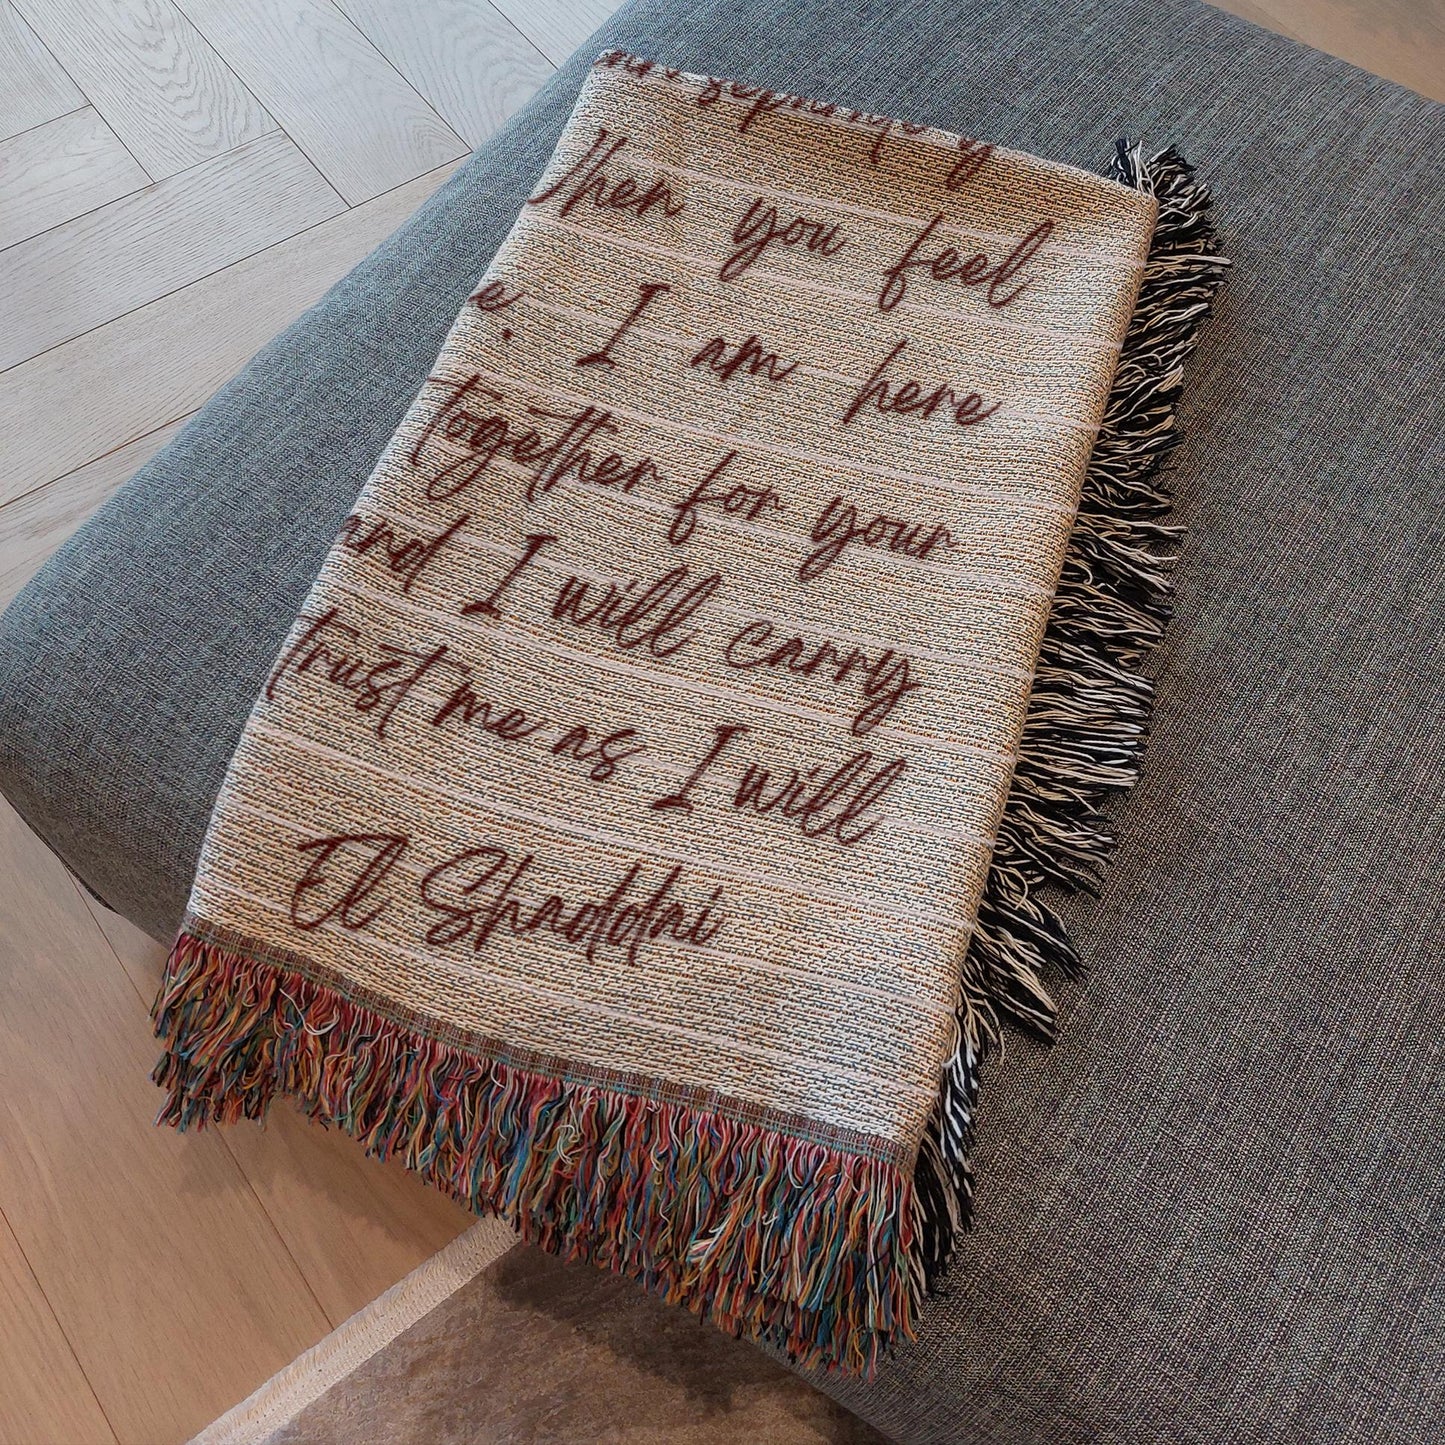 When you feel
e. I am here
together for your
and I will carry
trust me as I will
El Shaddai